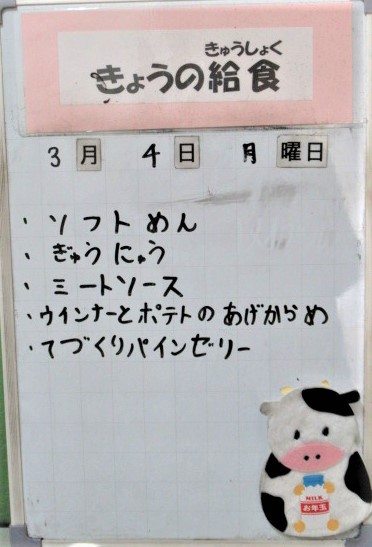 きゅうしょく
きょうの給食
3月 4日 月曜日
・ソフトめん
・ぎゅうにゅう
・ミートソース
・ウインナーとポテトのあげからめ
・てづくりパインゼリー
MILK
お年玉